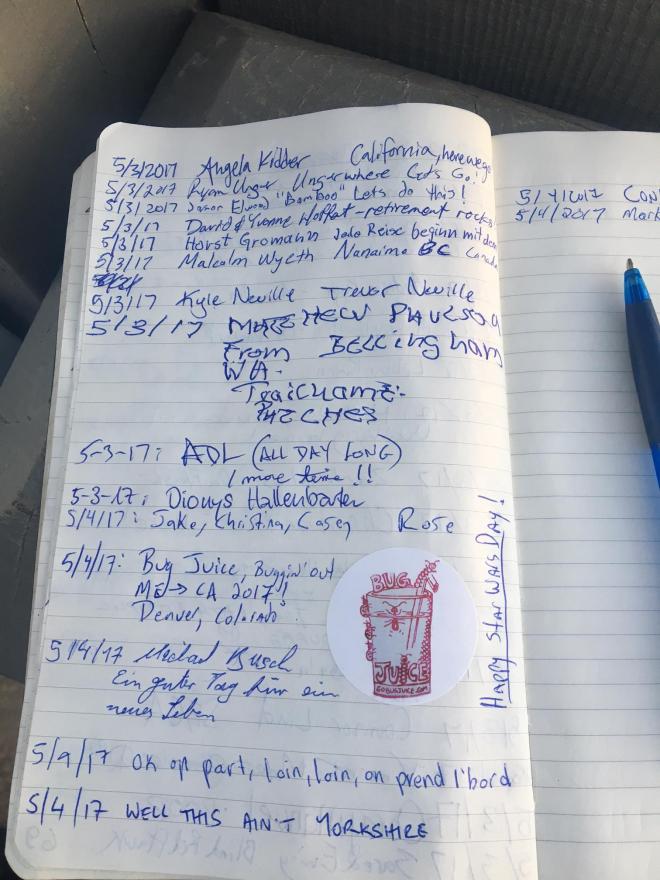 5/3/2017 Angela Kidder California, here we go
5/3/2017 Ryan Unger Ungerwhere Let's Go!
5/3/2017 Jason Elwood "Bamboo" Lets do this!
5/3/17 David & Yvonne Moffat - retirement rocks
5/3/17 Horst Gromann Reise beginn mit dem
5/3/17 Malcolm Wyeth Nanaimo BC Canada
5/3/17 Kyle Neville Trevor Neville
5/3/17
From Bellingham
WA.
Trailname:
5-3-17: ADL (ALL DAY LONG)
1 more time!!
5-3-17: Dionys Hallenbarter
5/4/17: Jake, Christina, Casey Rose
5/4/17: Bug Juice, Buggin' out
ME → CA 2017!
Denver, Colorado
BUG
JUICE
GOBUGJUICE.COM
Happy Star Wars Day!
5/4/17 Michael Busch
Ein guter Tag für ein
neues Leben
5/9/17 OK on part, loin, loin, on prend l'bord
5/4/17 WELL THIS AIN'T YORKSHIRE
5/4/2017
5/4/2017 Mark